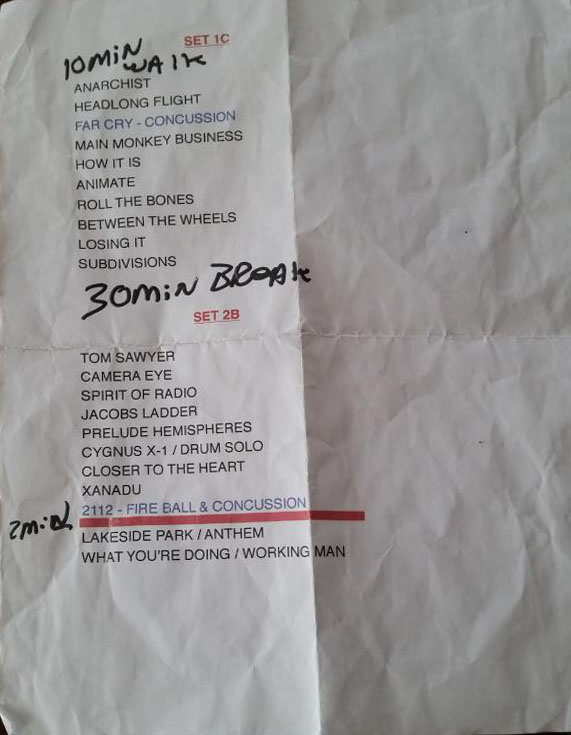 SET 1C
10MiN
WAlK
ANARCHIST
HEADLONG FLIGHT
FAR CRY - CONCUSSION
MAIN MONKEY BUSINESS
HOW IT IS
ANIMATE
ROLL THE BONES
BETWEEN THE WHEELS
LOSING IT
SUBDIVISIONS
30MiN BREAK
SET 2B
TOM SAWYER
CAMERA EYE
SPIRIT OF RADIO
JACOBS LADDER
PRELUDE HEMISPHERES
CYGNUS X-1 / DRUM SOLO
CLOSER TO THE HEART
XANADU
2112 - FIRE BALL & CONCUSSION
2MiN
LAKESIDE PARK / ANTHEM
WHAT YOU'RE DOING / WORKING MAN